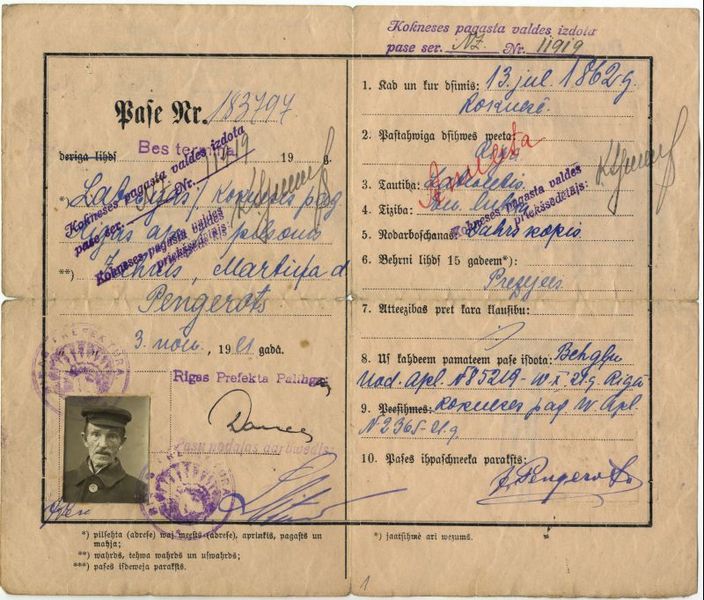 Kokneses pagasta valdes izdota
pase ser. NZ. Nr. 11919
Pase Nr. 183797
Bes termiņa
deriga lihds 19 g.
*) Latvijas, Kokneses pag
Kokneses pagasta valdes izdota
pase ser. Nr. 11919
Rīgas apr. pilsonis
Kokneses pagasta valdes
priekšsēdētājs:
**) Jehkabs, Martiņa d.
Pengerots
3. nov. 1921 gadā.
Rigas Prefekta Palihgs
PREFEKTURA
Pasu nodaļas darbvedis:
*) pilsehta (adrese) waj meests (adrese), aprinkis, pagasts un
mahja;
**) wahrds, tehwa wahrds un uswahrds;
***) pases isdeweja paraksts.
1. Kad un kur dsimis: 13. jul. 1862 g.
Koknesē.
2. Pastahwiga dsihwes weeta:
Anuleta
3. Tautiba: Latweetis.
4. Tiziba: ew. lut.
Kokneses pagasta valdes
priekšsēdētājs:
5. Nodarboschanas:
6. Behrni lihds 15 gadeem*):
7. Atteezibas pret kara klausibu:
8. Us kahdeem pamateem pase isdota: Behgļu
Nod. Apl. N 85219 – w. X. 21. g. Rigā
9. Peesihmes: Kokneses pag. w. Apl.
N 2365 – 21. g
10. Pases ihpaschneeka paraksts:
J. Pengerots
*) jaatsihmē ari wezums.
1